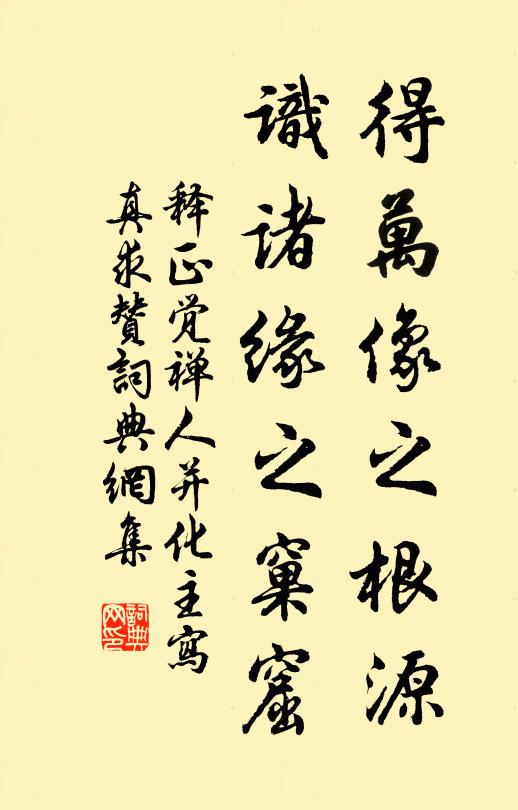 得萬像之根源
識諸緣之窠窟
释正觉禅人并化主寫
真求賛詞典網集
詞典网印